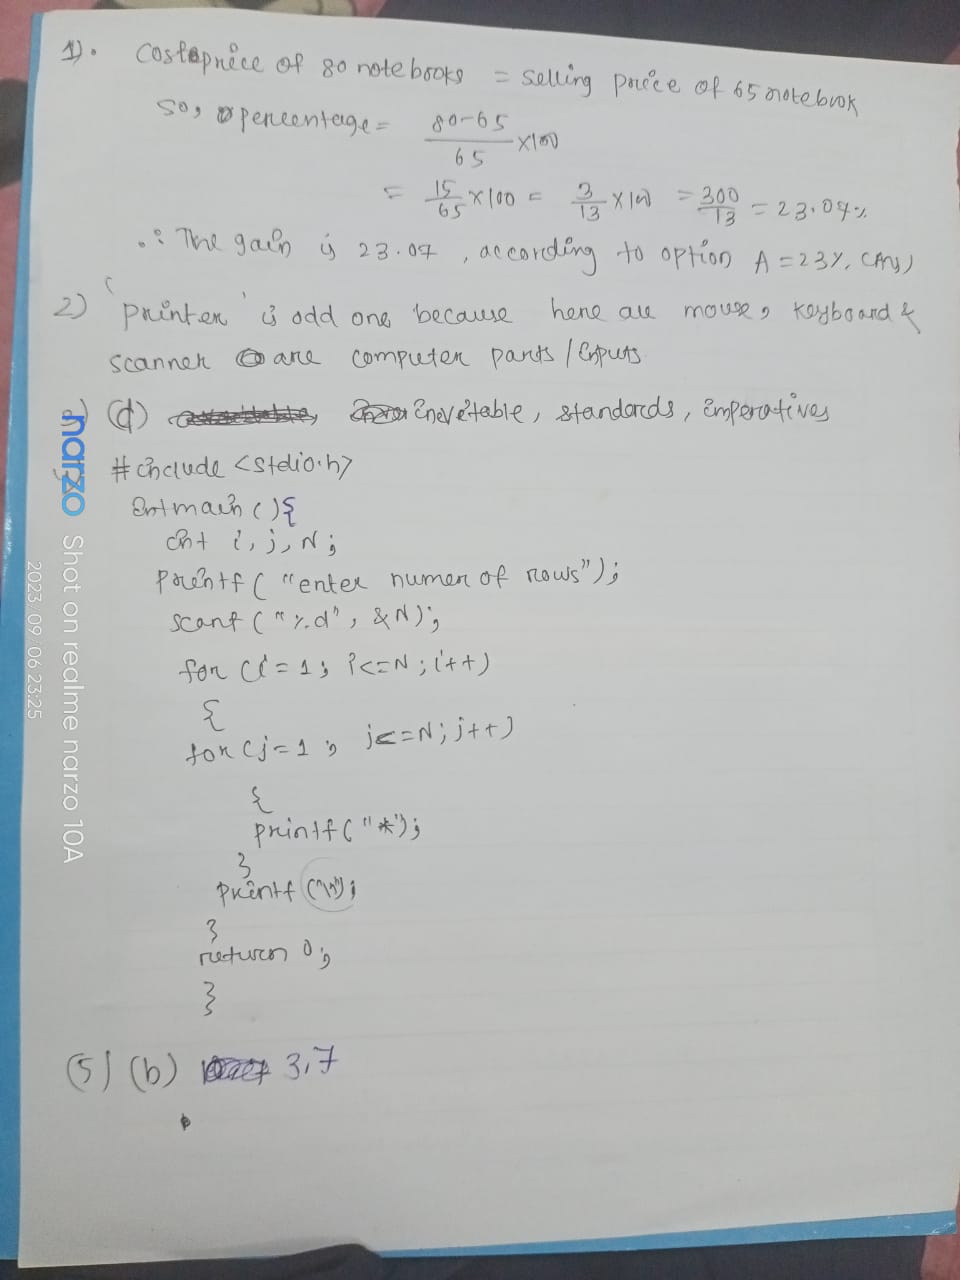 1). Costprice of 80 notebooks = selling price of 65 notebook
So, percentage = 80-65 / 65 ×100
= 15/65 × 100 = 3/13 × 100 = 300/13 = 23.07%
∴ The gain is 23.07, according to option A = 23%. (Ans)
2) 'printer' is odd one because here are mouse, keyboard &
scanner are computer parts / inputs
(d) inevitable, standards, imperatives
#include <stdio.h>
int main(){
int i, j, N;
printf("enter numer of rows");
scanf("%d", &N);
for (i=1; i<=N; i++)
{
for (j=1; j<=N; j++)
{
printf("*");
}
printf("\n");
}
return 0;
}
(5) (b) 3,7
narzo Shot on realme narzo 10A
2023/09/06 23:25